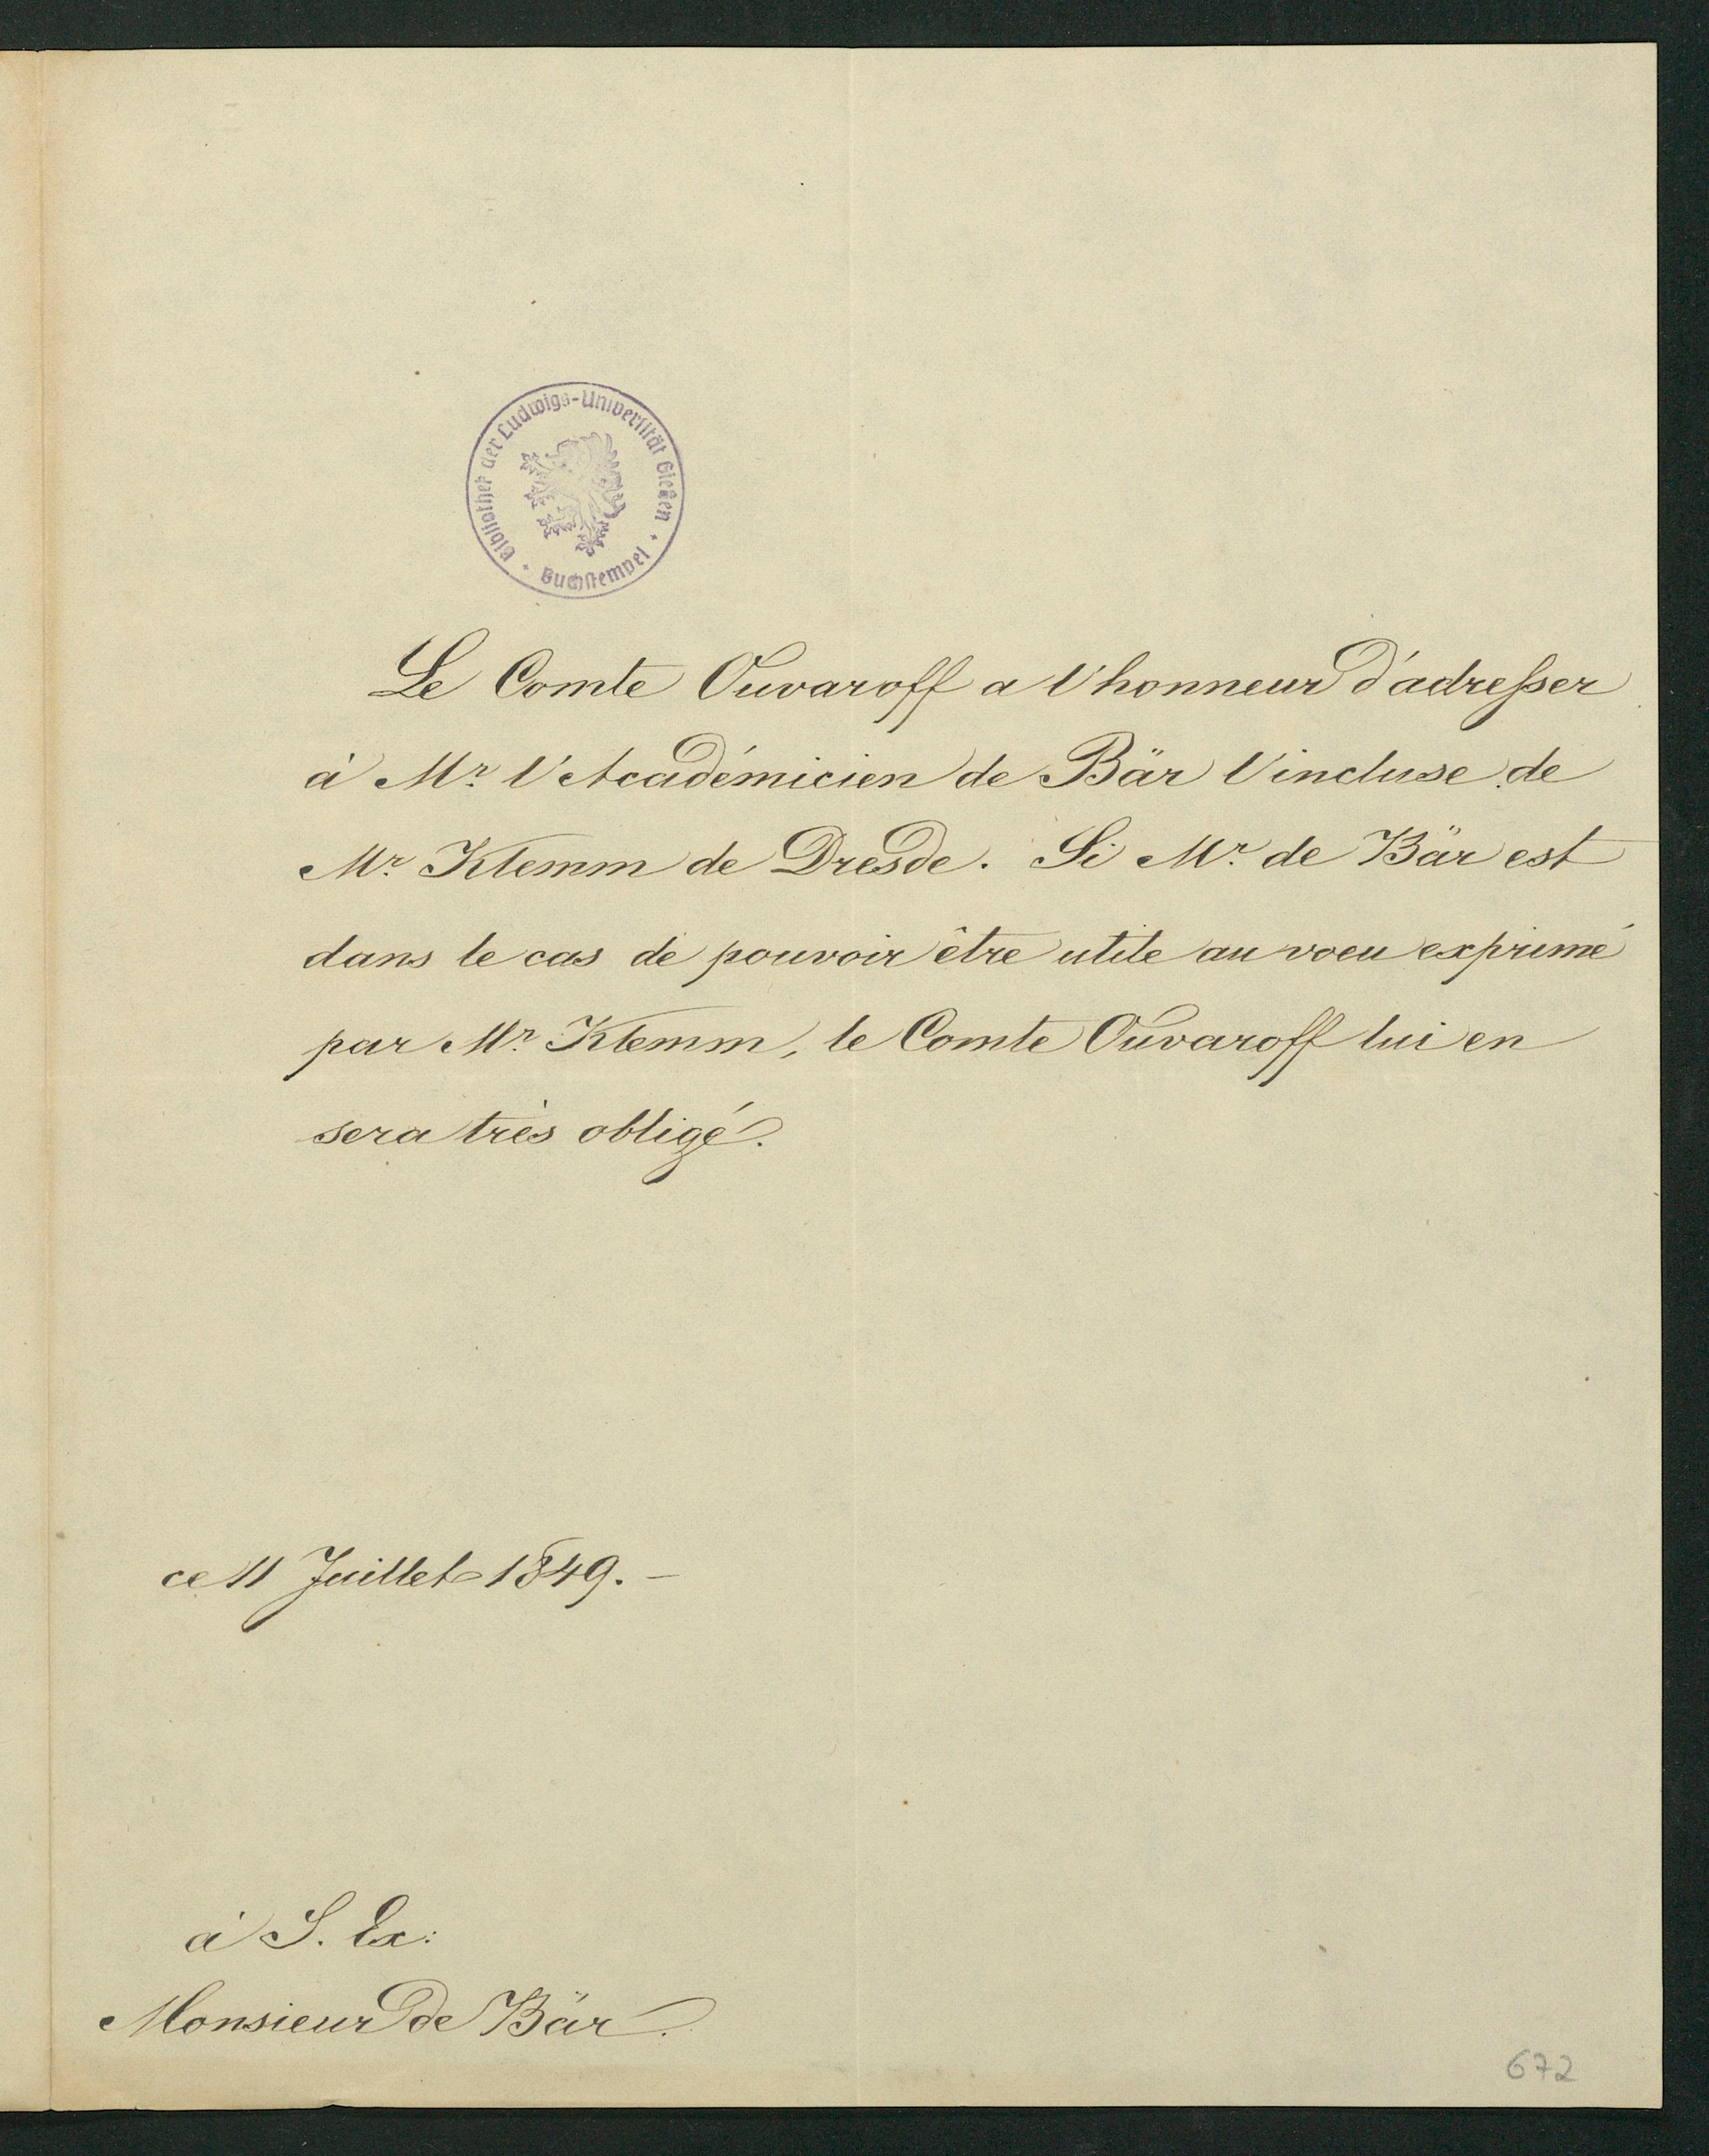 Bibliothek der Ludwigs-Universität Gießen
Buchstempel
Le Comte Ouvaroff a l'honneur d'adresser
à Mr. l'Académicien de Bär l'incluse de
Mr. Klemm de Dresde. Si Mr. de Bär est
dans le cas de pouvoir être utile au voeu exprimé
par Mr. Klemm, le Comte Ouvaroff lui en
sera très obligé.
ce 11 Juillet 1849. –
à S. Ex:
Monsieur de Bär.
672